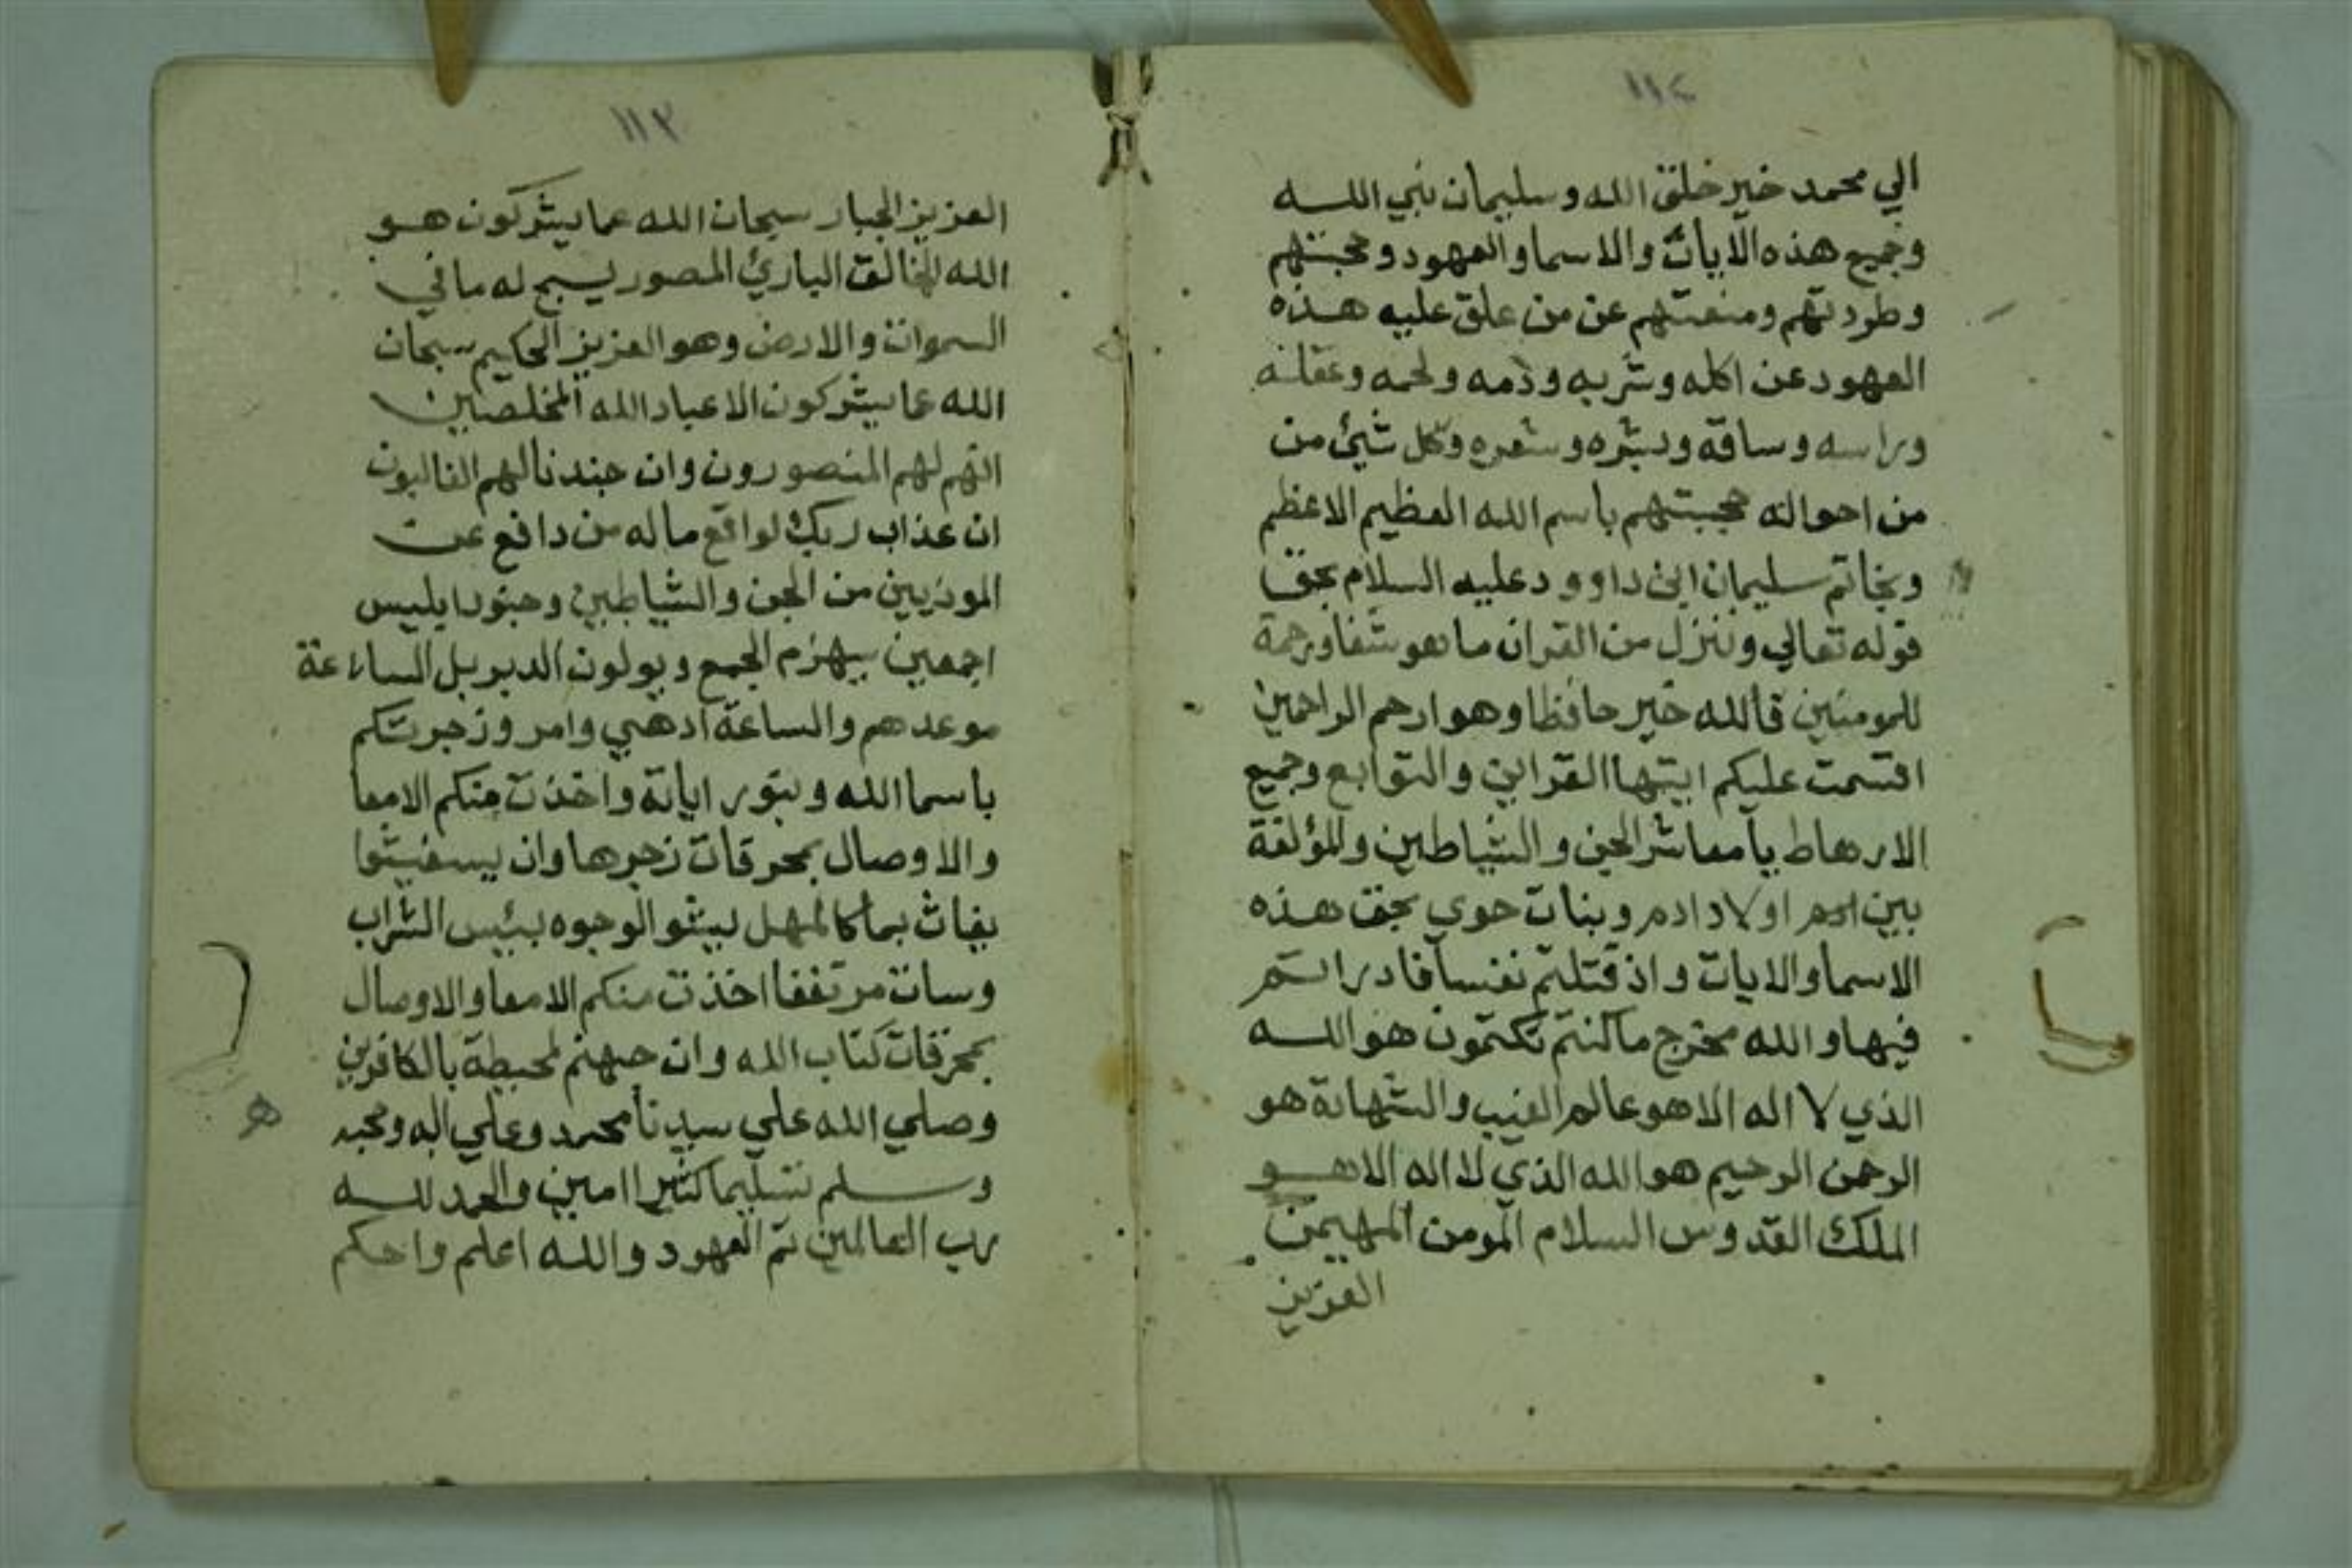 ١١٢
الي محمد خير خلق الله وسليمان نبي الله
وجميع هذه الايات والاسما والعهود وحجبتهم
وطردتهم ومنعتهم عن من علق عليه هذه
العهود عن اكله وشربه ودمه ولحمه وعقله
وراسه وساقه وبشره وشعره وكل شيئ من
من احواله حجبتهم باسم الله العظيم الاعظم
وبخاتم سليمان ابن داوود عليه السلام بحق
قوله تعالي وننزل من القران ما هو شفا ورحمة
للمومنين فالله خير حافظا وهو ارحم الراحمين
اقسمت عليكم ايتها القراين والتوابع وجميع
الارهاط يا معاشر الجن والشياطين والمؤلفة
بين اولاد ادم وبنات حوي بحق هذه
الاسما والايات واذ قتلتم نفسا فادراتم
فيها والله مخرج ما كنتم تكتمون هو الله
الذي لا اله الا هو عالم الغيب والشهادة هو
الرحمن الرحيم هو الله الذي لا اله الا هو
الملك القدوس السلام المومن المهيمن
العزيز
١١٣
العزيز الجبار سبحان الله عما يشركون هو
الله الخالق الباريئ المصور يسبح له ما في
السموات والارض وهو العزيز الحكيم سبحان
الله عما يشركون الا عباد الله المخلصين
انهم لهم المنصورون وان جندنا لهم الغالبون
ان عذاب ربك لواقع ماله من دافع عن
الموذيين من الجن والشياطين وجنود ابليس
اجمعين سيهزم الجمع ويولون الدبر بل الساعة
موعدهم والساعة ادهي وامر وزجرتكم
باسما الله وبنور اياته واخذت منكم الامعا
والاوصال بمحرقات زجرها وان يستغيثوا
يغاث بما كالمهل يشو الوجوه بئيس الشراب
وسات مرتفقا اخذت منكم الامعا والاوصال
بمحرقات كتاب الله وان جهنم لمحيطة بالكافرين
وصلي الله علي سيدنا محمد وعلي اله وصحبه
وسلم تسليما كثيرا امين والحمد لله
رب العالمين تم العهود والله اعلم واحكم